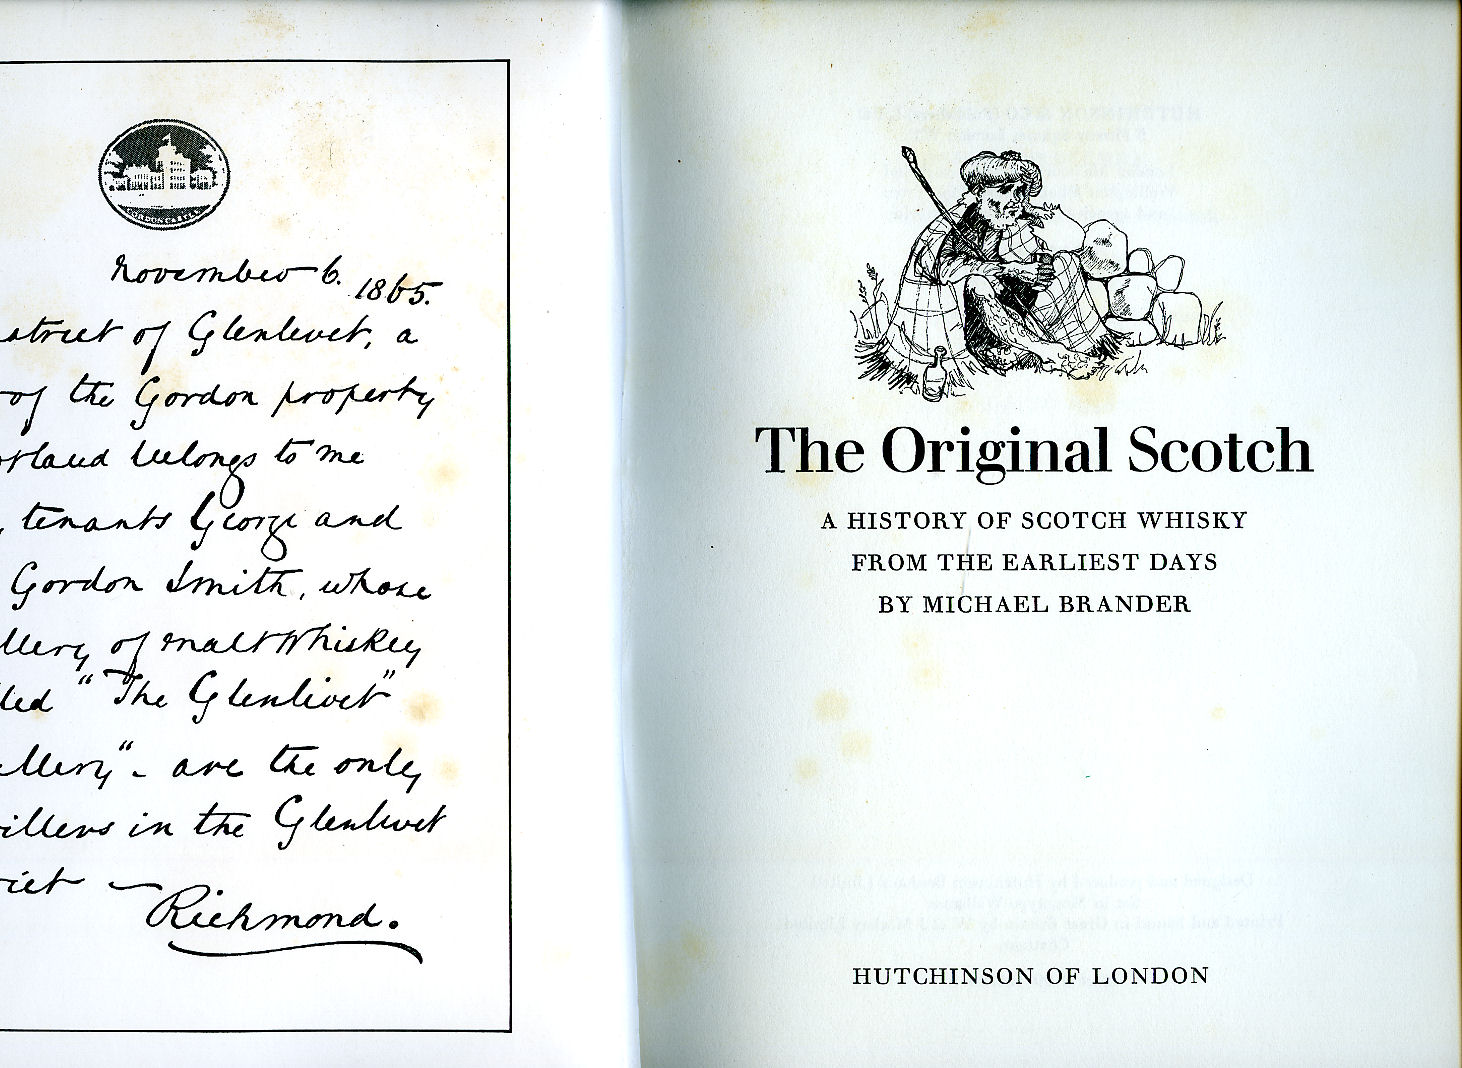 GORDON CASTLE
November 6. 1865.
strict of Glenlivet, a
of the Gordon property
otland belongs to me
, tenants George and
Gordon Smith, whose
llery of malt Whiskey
lled "The Glenlivet"
llery" - are the only
illers in the Glenlivet
rict —
Richmond.
The Original Scotch
A HISTORY OF SCOTCH WHISKY
FROM THE EARLIEST DAYS
BY MICHAEL BRANDER
HUTCHINSON OF LONDON